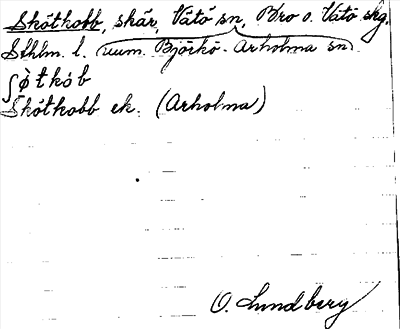 Skötkobb, skär, Vätö sn, Bro o. Vätö skg,
Sthlm. l. (uum. Björkö-Arholma sn).
ʃö̀tkob
Skötkobb ek. (Arholma)
O. Lundberg